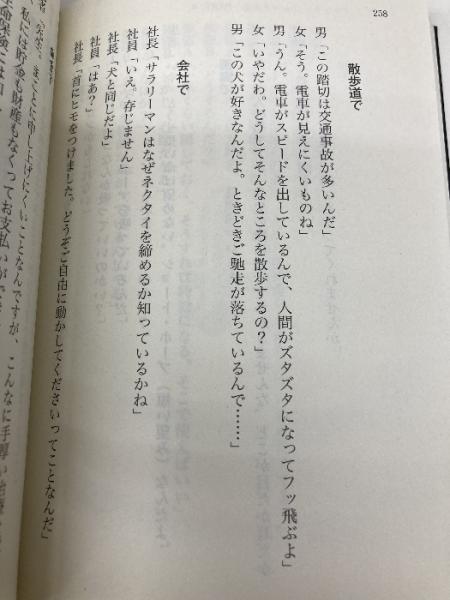 258
散歩道で
男「この踏切は交通事故が多いんだ」
女「そう。電車が見えにくいものね」
男「うん。電車がスピードを出しているんで、人間がズタズタになってフッ飛ぶよ」
女「いやだわ。どうしてそんなところを散歩するの?」
男「この犬が好きなんだよ。ときどきご馳走が落ちているんで……」
会社で
社長「サラリーマンはなぜネクタイを締めるか知っているかね」
社員「いえ。存じません」
社長「犬と同じだよ」
社員「はあ?」
社長「首にヒモをつけました。どうぞご自由に動かしてくださいってことなんだ」
「先生。まことに申し上げにくいことなんですが、こんなに手厚い
私には貯金も財産もなくってお支払いができ